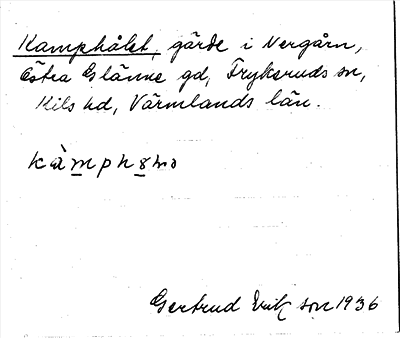 Kamphålet, gärde i Nergårn,
Östra Glänne gd, Frykeruds sn,
Kils hd, Värmlands län.
Gertrud Erikson 1936